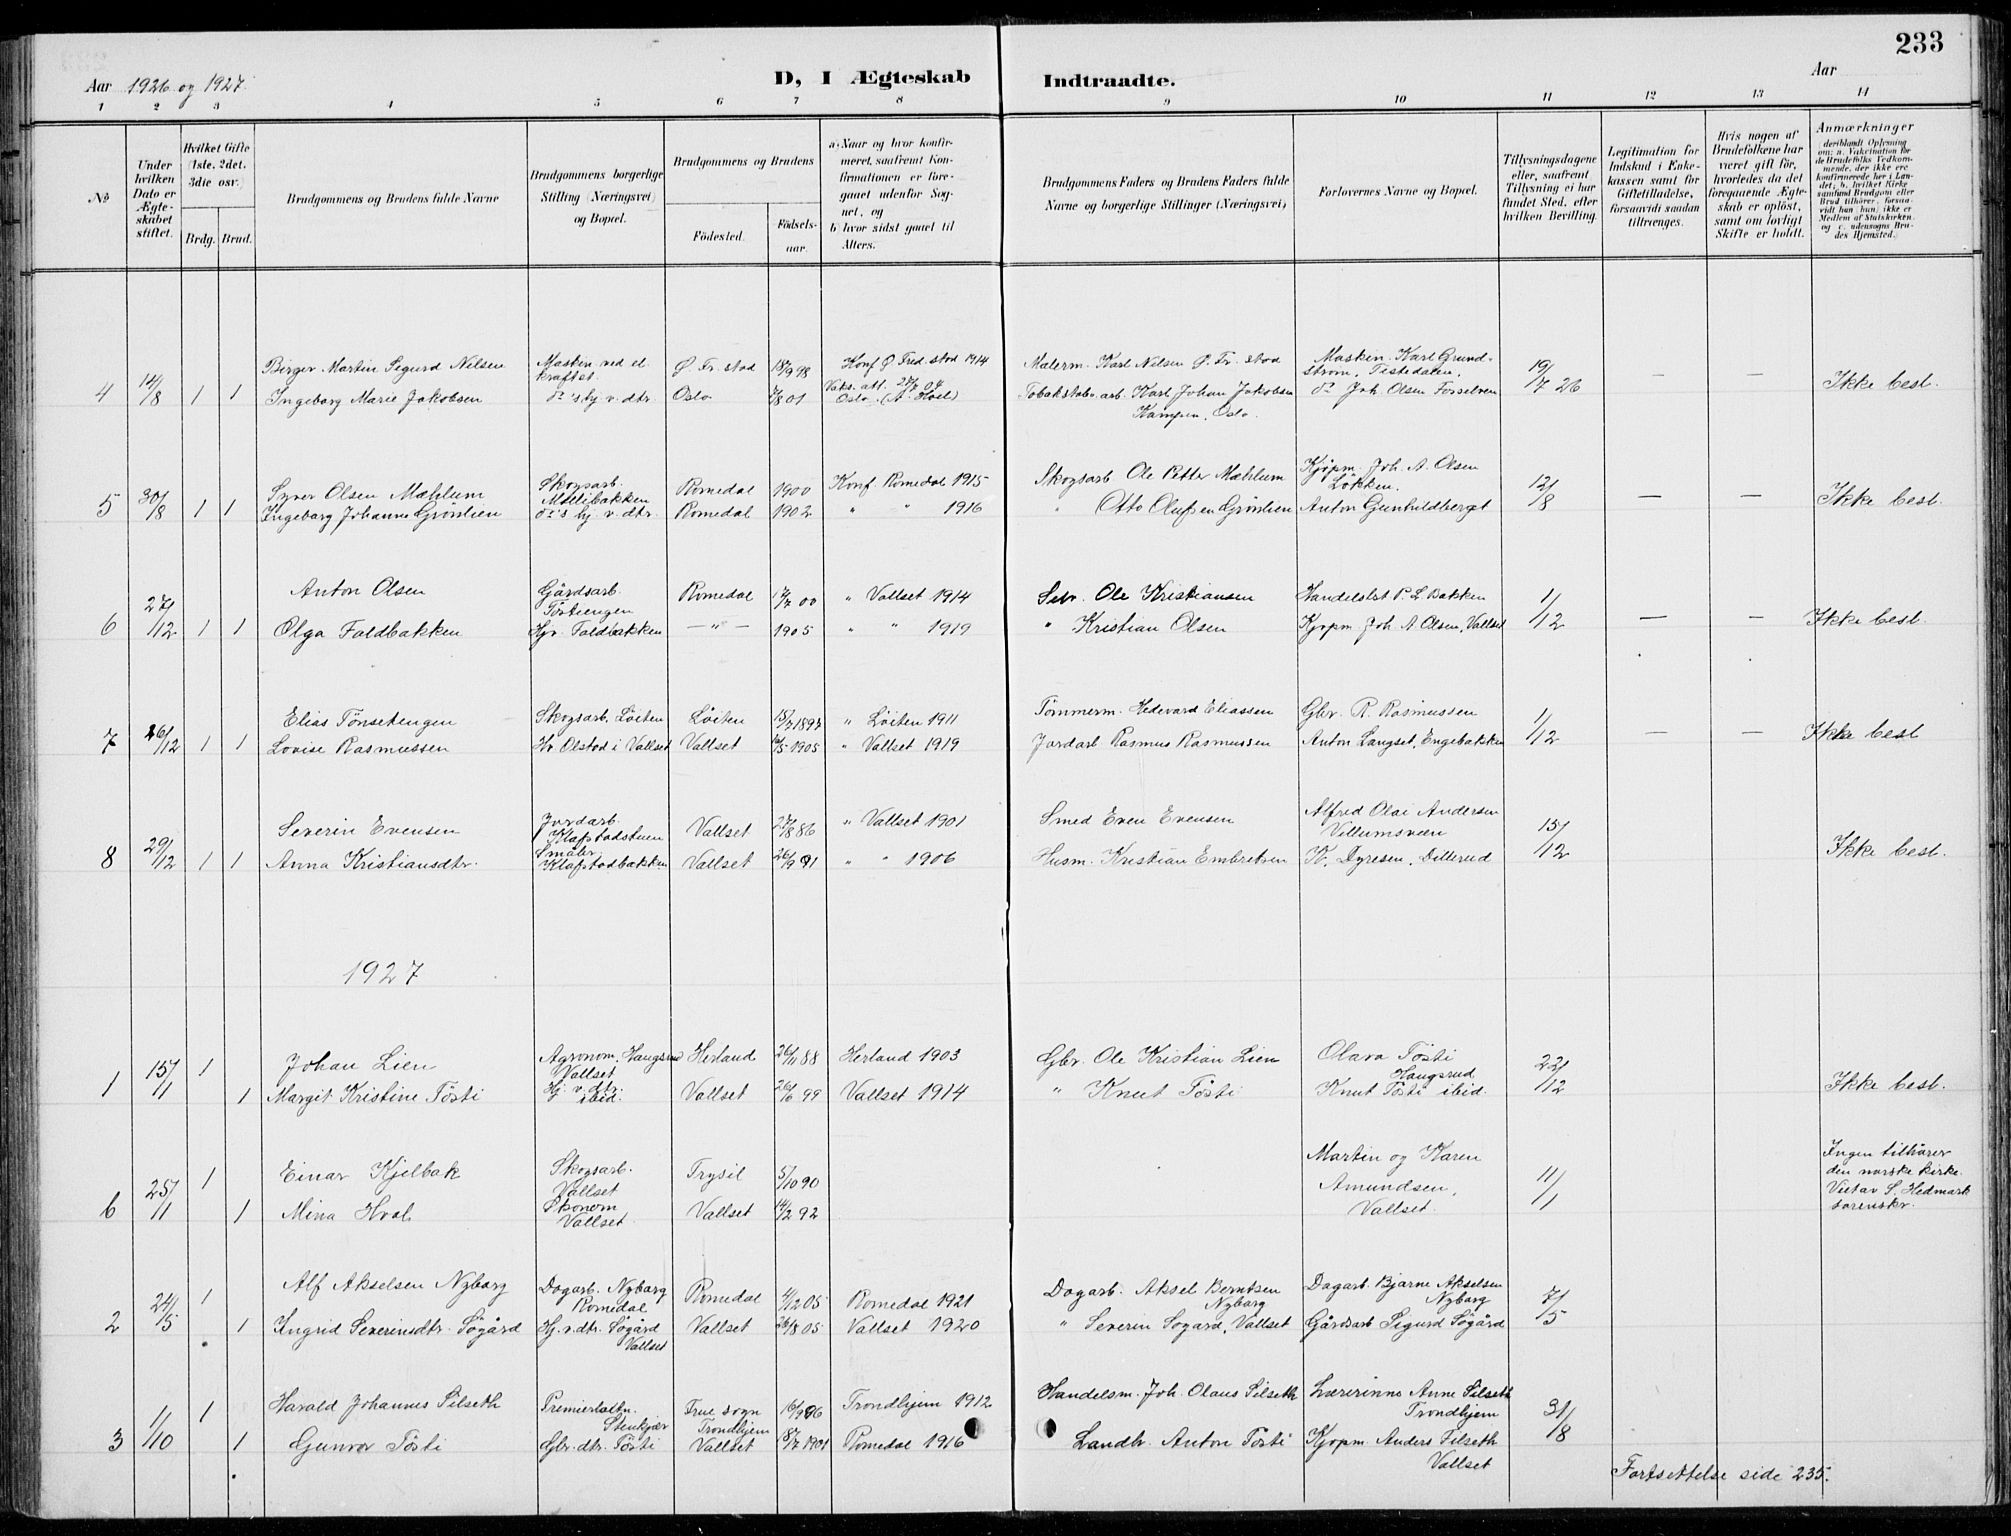 233
Aar 1926 og 1927.
D, I Ægteskab Indtraadte.
Aar
1 2 3 4 5 6 7 8 9 10 11 12 13 14
No
Under hvilken Dato er Ægteskabet stiftet.
Hvilket Gifte (1ste. 2det. 3die osv.)
Brdg. Brud.
Brudgommens og Brudens fulde Navne
Brudgommens borgerlige Stilling (Næringsvei) og Bopæl.
Brudgommens og Brudens
Fødested.
Fødselsaar.
a. Naar og hvor konfirmeret, saafremt Konfirmationen er foregaaet udenfor Sognet, og
b hvor sidst gaaet til Alters.
Brudgommens Faders og Brudens Faders fulde Navne og borgerlige Stillinger (Næringsvei)
Forlovernes Navne og Bopæl.
Tillysningsdagene eller, saafremt Tillysning ei har fundet Sted, efter hvilken Bevilling.
Legitimation for Indskud i Enkekassen samt for Giftetilladelse, forsaavidt saadan tiltrænges.
Hvis nogen af Brudefolkene har været gift før, hvorledes da det foregaaende Ægteskab er opløst, samt om lovligt Skifte er holdt.
Anmærkninger (deriblandt Oplysning om: a. Vakcination for de Brudefolks Vedkommende, der ikke ere konfirmerede her i Landet; b. hvilket Kirkesamfund Brudgom eller Brud tilhører, forsaavidt han (hun) ikke er Medlem af Statskirken, og c. udensogns Brudes Hjemsted.)
4 14/8 1 1
Birger Martin Sigurd Nilsen Masken ved el. kraftst. Ø. Fr. stad 18/9 98 Konf Ø Fred.stad 1914 Malerm. Karl Nilsen Ø. Fr. stad Masken. Karl Grundstrøm, Tistedalen. 19/7 26 — — Ikke besl.
Ingeborg Marie Jakobsen do's hj v. dtr. Oslo 7/8 01 Vaks. att. 27/7 04 Oslo. (A. Hoel) Tobaksfabr. arb. Karl Johan Jakobsen Kampen, Oslo. do Joh. Olsen Fosselven
5 30/8 1 1
Syver Olsen Mæhlum Skogsarb. Mællibakken Romedal 1900 Konf Romedal 1915 Skogsarb Ole Petter Mæhlum Kjøpm. Joh. A. Olsen Løkken. 12/8 — — Ikke besl.
Ingeborg Johanne Grønlien do's hj. v. dtr. Romedal 1902 " " 1916 " Otto Olufsen Grønlien Anton Gunhildberget
6 27/12 1 1
Anton Olsen Gårdsarb. Tøstiengen Romedal 17/7 00 " Vallset 1914 Selv. Ole Kristiansen Handelsbst P. L Bakken 1/12 — — Ikke besl.
Olga Foldbakken Hjv. Foldbakken — " — 1905 " " 1919 " Kristian Olsen Kjøpm. Joh. A. Olsen, Vallset
7 26/12 1 1
Elias Tønsetengen Skogsarb. Løiten Løiten 15/7 1897 " Løiten 1911 Tømmerm. Hedevard Eliassen Gbr. R. Rasmussen 1/12 — — Ikke besl
Lovise Rasmussen Hv. Olstad i Vallset Vallset 16/5 1905 " Vallset 1919 Jordarb Rasmus Rasmussen Anton Langset, Engebakken
8 29/12 1 1
Severin Evensen Jordarb. Klafstadstuen Vallset 27/8 86 " Vallset 1901 Smed Even Evensen Alfred Olai Andersen Villumsveen 15/12 Ikke besl.
Anna Kristiansdtr. Småbr. Klafstadbakken Vallset 26/9 91 " " 1906 Husm. Kristian Embretsen K. Dyresen, Dillerud
1927
1 15/1 1 1
Johan Lien Agronom, Haugsrud Vallset Herland 26/11 88 Herland 1903 Gbr. Ole Kristian Lien Olava Tøsti Haugsrud 22/12 Ikke besl.
Margit Kristine Tøsti Hj. v. dtr. ibid. Vallset 26/6 99 Vallset 1914 " Knut Tøsti Knut Tøsti ibid.
6 25/1 1 1
Einar Kjelbak Skogsarb. Vallset Trysil 5/10 90 Martin og Karen Amundsen, Vallset. 11/1 Ingen tilhører den norske kirke. Viet av S. Hedmark sorenskr.
Mina Hval Økonom Vallset. Vallset 14/2 92
2 24/5 1 1
Alf Akselsen Nyborg Dagarb. Nyborg Romedal Romedal 4/12 05 Romedal 1921 Dagarb. Aksel Berntsen Nyborg Dagarb. Bjarne Akselsen Nyborg 7/5
Ingrid Severinsdtr. Søgård Hj. v. dtr. Søgård Vallset Vallset 26/8 05 Vallset 1920 " Severin Søgard, Vallset Gårdsarb Sigurd Søgård
3 1/10 1 1
Harald Johannes Silseth Premierløitn. Stenkjær Frue sogn Trondhjem 16/9 96 Trondhjem 1912 Handelsm. Joh. Olaus Silseth Lærerinne Anne Silseth Trondhjem 31/8
Gunvor Tøsti Gbr. dtr. Tøsti Vallset 8/7 1901 Romedal 1916 Landbr. Anton Tøsti Kjøpm. Anders Filseth Vallset
Fortsettelse side 235.